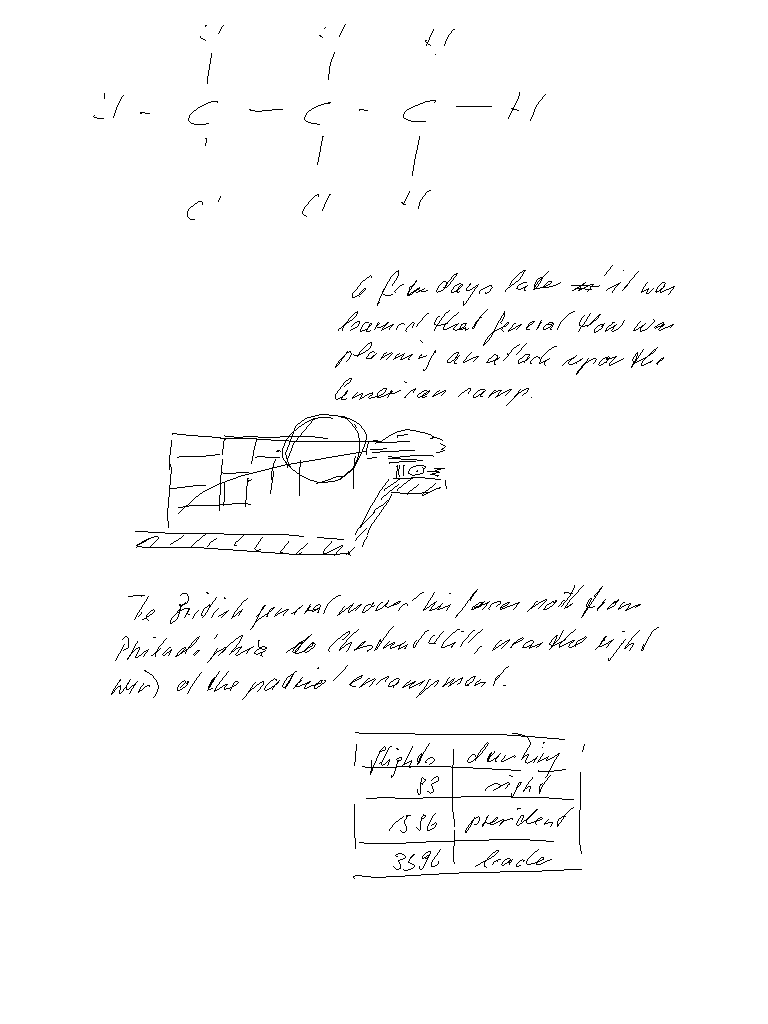 H H H
H - C - C - C - H
Cl Cl H
A few days later it was
learned that General Howe was
planning an attack upon the
American camp.
The British general moved his forces north from
Philadelphia to Chestnut Hill, near the right
wing of the patriot encampment.
flights
93 right
1596 president
3596 leader